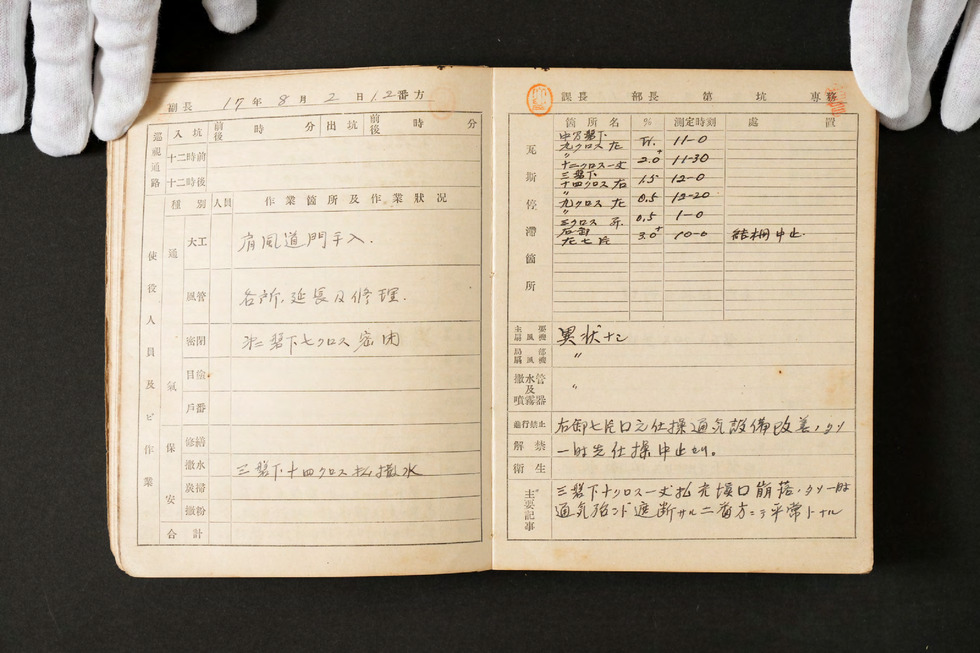 副長 17年8月2日1.2番方
巡視通路 入坑 前後 時 分 出坑 前後 時 分
十二時前
十二時後
使役人員及ビ作業
種別 人員 作業箇所及作業状況
通氣
大工 肩風道門手入.
風管 各所,延長及修理.
密閉 次二磐下七クロス密閉
目塗
戶番
保安
修繕
撒水 三磐下十四クロス払撒水
炭掃
撒粉
合計
課長 部長 第 坑 専務
瓦斯停滯箇所
箇所名 % 測定時刻 處置
九クロス左 Tr. 11-0
〃
十二クロス一丈 2.0+ 11-30
三磐下
十四クロス右 1.5 12-0
〃
九クロス左 0.5 12-20
〃
三クロス 0.5 1-0
右卸
左七片 3.0+ 10-0 結柵中止.
主要扇風機 異状ナシ
局部扇風機 〃
撒水管及噴霧器 〃
解禁
衛生
右卸七片口元仕操通気設備改善,タメ
一時先仕操中止セリ。
主要記事
三磐下十クロス一丈払元坑口崩落,タメ一時
通気殆ンド遮断サル二番方ニテ平常トナル